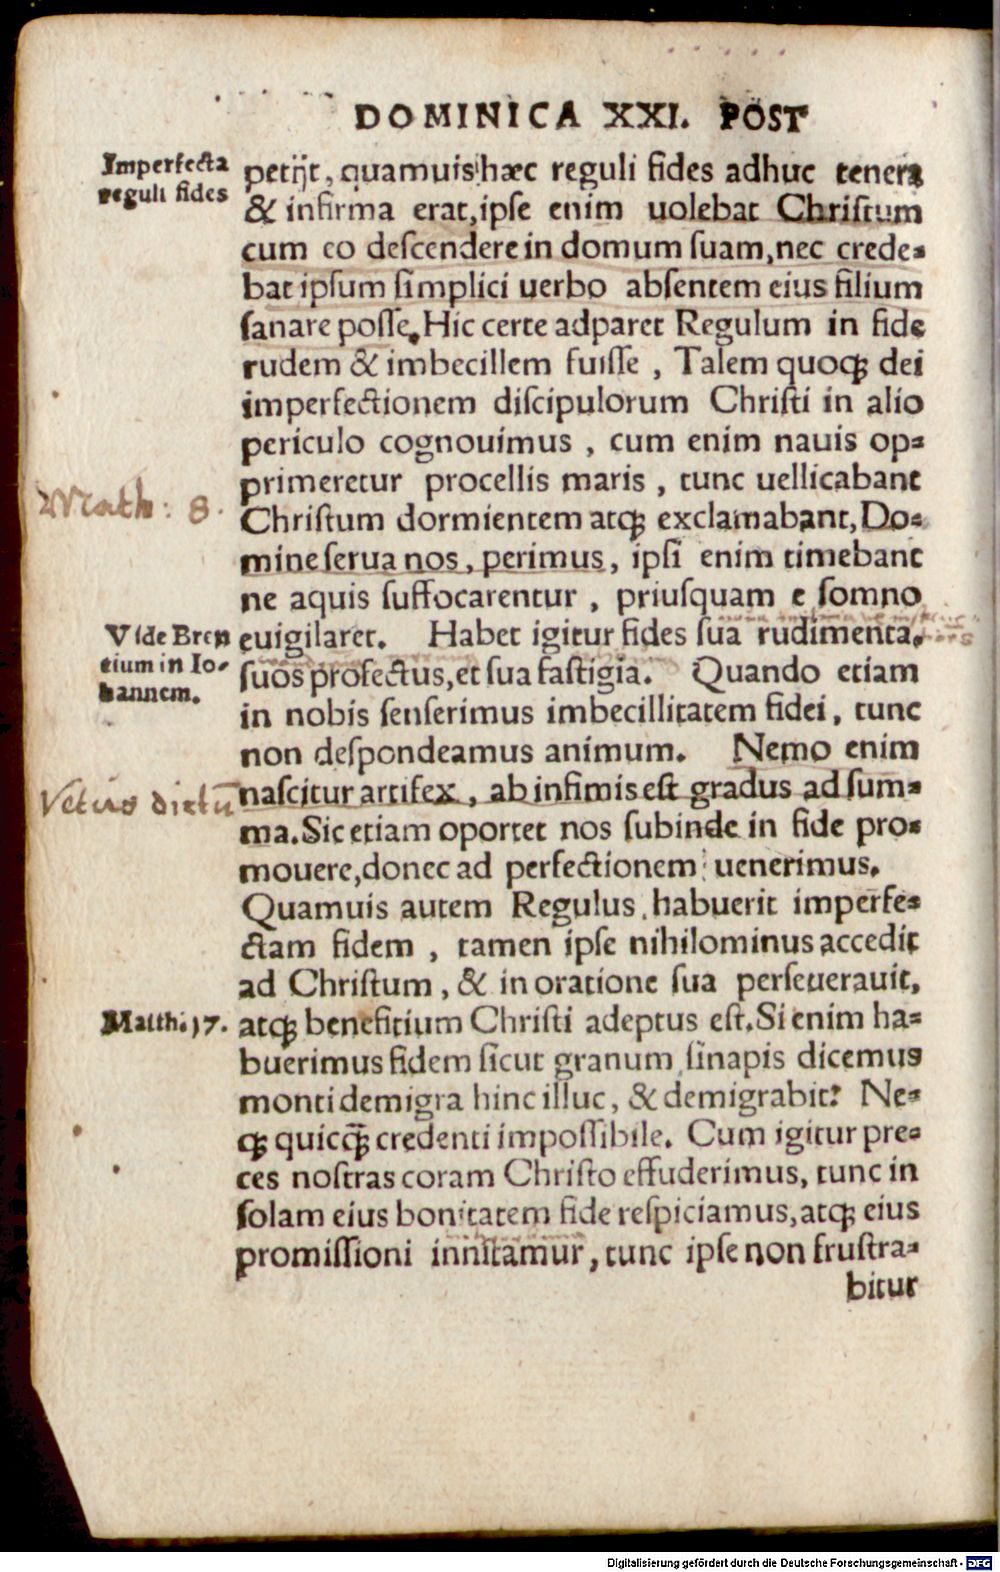 DOMINICA XXI. POST
Imperfecta
reguli fides
petijt, quamuis hæc reguli fides adhuc tenera
& infirma erat, ipſe enim uolebat Chriſtum
cum eo deſcendere in domum ſuam, nec crede⸗
bat ipſum ſimplici uerbo abſentem eius filium
ſanare poſſe. Hic certe adparet Regulum in fide
rudem & imbecillem fuiſſe, Talem quoqꝫ dei
imperfectionem diſcipulorum Chriſti in alio
periculo cognouimus, cum enim nauis op⸗
primeretur procellis maris, tunc uellicabant
Math: 8.
Chriſtum dormientem atqꝫ exclamabant, Do⸗
mine ſerua nos, perimus, ipſi enim timebant
ne aquis ſuffocarentur, priuſquam e ſomno
Vide Bren
tium in Io⸗
hannem.
euigilaret. Habet igitur fides ſua rudimenta,
ſuos profectus, et ſua faſtigia. Quando etiam
in nobis ſenſerimus imbecillitatem fidei, tunc
non deſpondeamus animum. Nemo enim
Vetus dictū
naſcitur artifex, ab infimis eſt gradus ad ſum⸗
ma. Sic etiam oportet nos ſubinde in fide pro⸗
mouere, donec ad perfectionem uenerimus.
Quamuis autem Regulus habuerit imperfe⸗
ctam fidem, tamen ipſe nihilominus accedit
ad Chriſtum, & in oratione ſua perſeuerauit,
Matth. 17.
atqꝫ benefitium Chriſti adeptus eſt. Si enim ha⸗
buerimus fidem ſicut granum ſinapis dicemus
monti demigra hinc illuc, & demigrabit? Ne⸗
qꝫ quicqꝫ̃ credenti impoſſibile. Cum igitur pre⸗
ces noſtras coram Chriſto effuderimus, tunc in
ſolam eius bonitatem fide reſpiciamus, atqꝫ eius
promiſſioni innitamur, tunc ipſe non fruſtra⸗
bitur
Digitalisierung gefördert durch die Deutsche Forschungsgemeinschaft - DFG